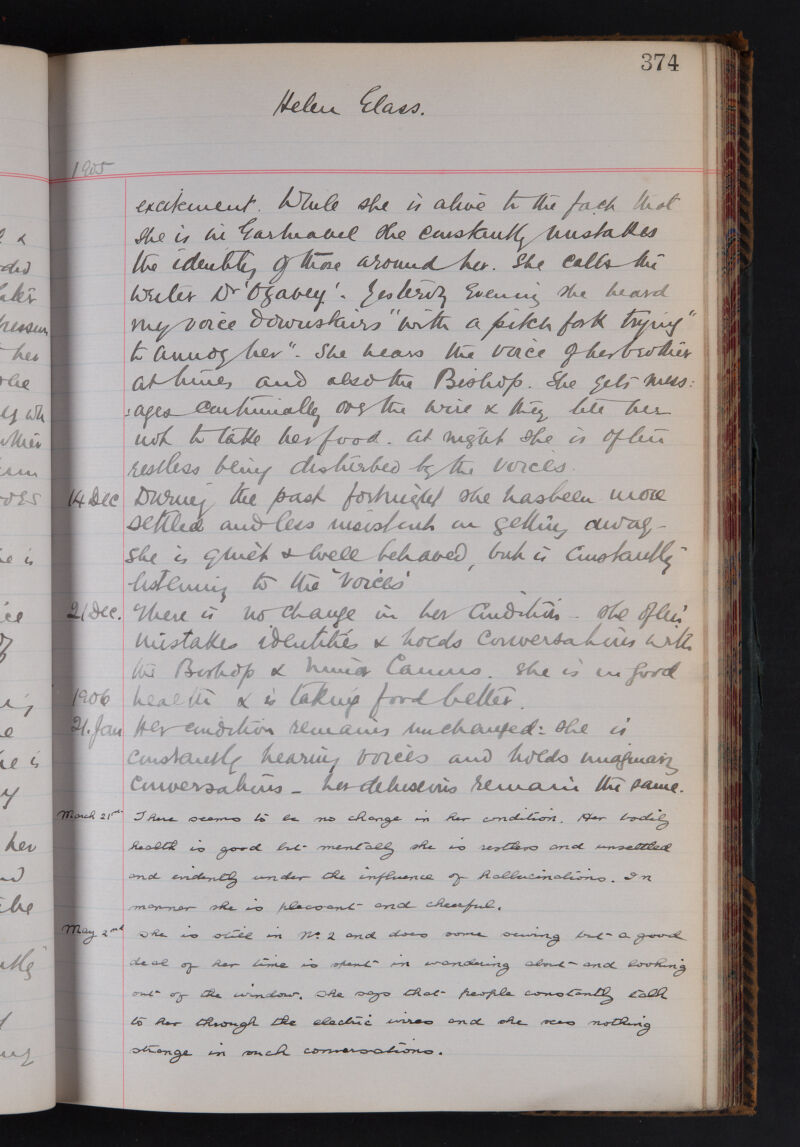 374
Helen Glass.
1905
excitement. While she is alive to the fact that
she is in Gartnavel she constantly mistakes
the identity of those around her. She calls the
writer Dr 'Ogavey'. Yesterday Evening she heard
my voice downstairs "with a pitch fork trying"
to annoy her". She hears the voice of her brother
at times and also the Bishop. She gets mess:
:ages continually over the wire & they tell her
not to take her food. At night she is often
restless being disturbed by the voices.
14 Dec During the past fortnight she has been more
settled and less insistent on getting away -
she is quiet & well behaved, but is constantly
listening to the 'voices'
21 Dec. There is no change in her condition - she often
mistakes identities & holds conversations with
the Bishop & Canons. She is in good
1906 health & is taking food better.
21. Jan Her condition remains unchanged: she is
constantly hearing voices and holds imaginary
conversations - her delusions remain the same.
March 21st There seems to be no change in her condition. Her bodily
health is good but mentally she is restless and unsettled
and evidently under the influence of hallucinations. In
manner she is pleasant and cheerful.
May 2nd She is still in No. 2 and does some sewing but a good
deal of her time is spent in wandering about and looking
out of the window. She says that people constantly talk
to her through the electric wires and she sees nothing
strange in such conversations.